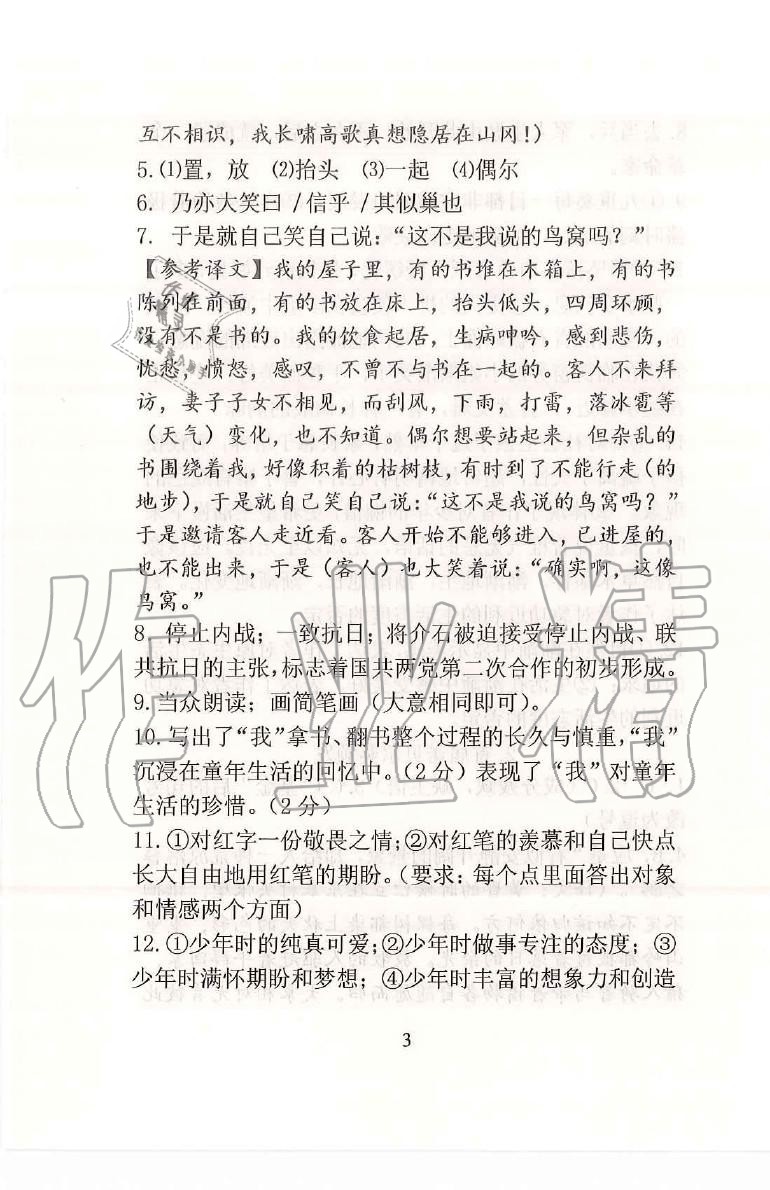 互不相识，我长啸高歌真想隐居在山冈！)
5.⑴置，放　⑵抬头　⑶一起　⑷偶尔
6. 乃亦大笑曰/信乎/其似巢也
7. 于是就自己笑自己说：“这不是我说的鸟窝吗？”
【参考译文】我的屋子里，有的书堆在木箱上，有的书
陈列在前面，有的书放在床上，抬头低头，四周环顾，
没有不是书的。我的饮食起居，生病呻吟，感到悲伤，
忧愁，愤怒，感叹，不曾不与书在一起的。客人不来拜
访，妻子子女不相见，而刮风，下雨，打雷，落冰雹等
（天气）变化，也不知道。偶尔想要站起来，但杂乱的
书围绕着我，好像积着的枯树枝，有时到了不能行走(的
地步)，于是就自己笑自己说：“这不是我说的鸟窝吗？”
于是邀请客人走近看。客人开始不能够进入，已进屋的，
也不能出来，于是（客人）也大笑着说：“确实啊，这像
鸟窝。”
8. 停止内战；一致抗日；将介石被迫接受停止内战、联
共抗日的主张，标志着国共两党第二次合作的初步形成。
9. 当众朗读；画简笔画（大意相同即可）。
10. 写出了“我”拿书、翻书整个过程的长久与慎重，“我”
沉浸在童年生活的回忆中。（2分）表现了“我”对童年
生活的珍惜。（2分）
11. ①对红字一份敬畏之情；②对红笔的羡慕和自己快点
长大自由地用红笔的期盼。（要求：每个点里面答出对象
和情感两个方面）
12. ①少年时的纯真可爱；②少年时做事专注的态度；③
少年时满怀期盼和梦想；④少年时丰富的想象力和创造
3
作业精